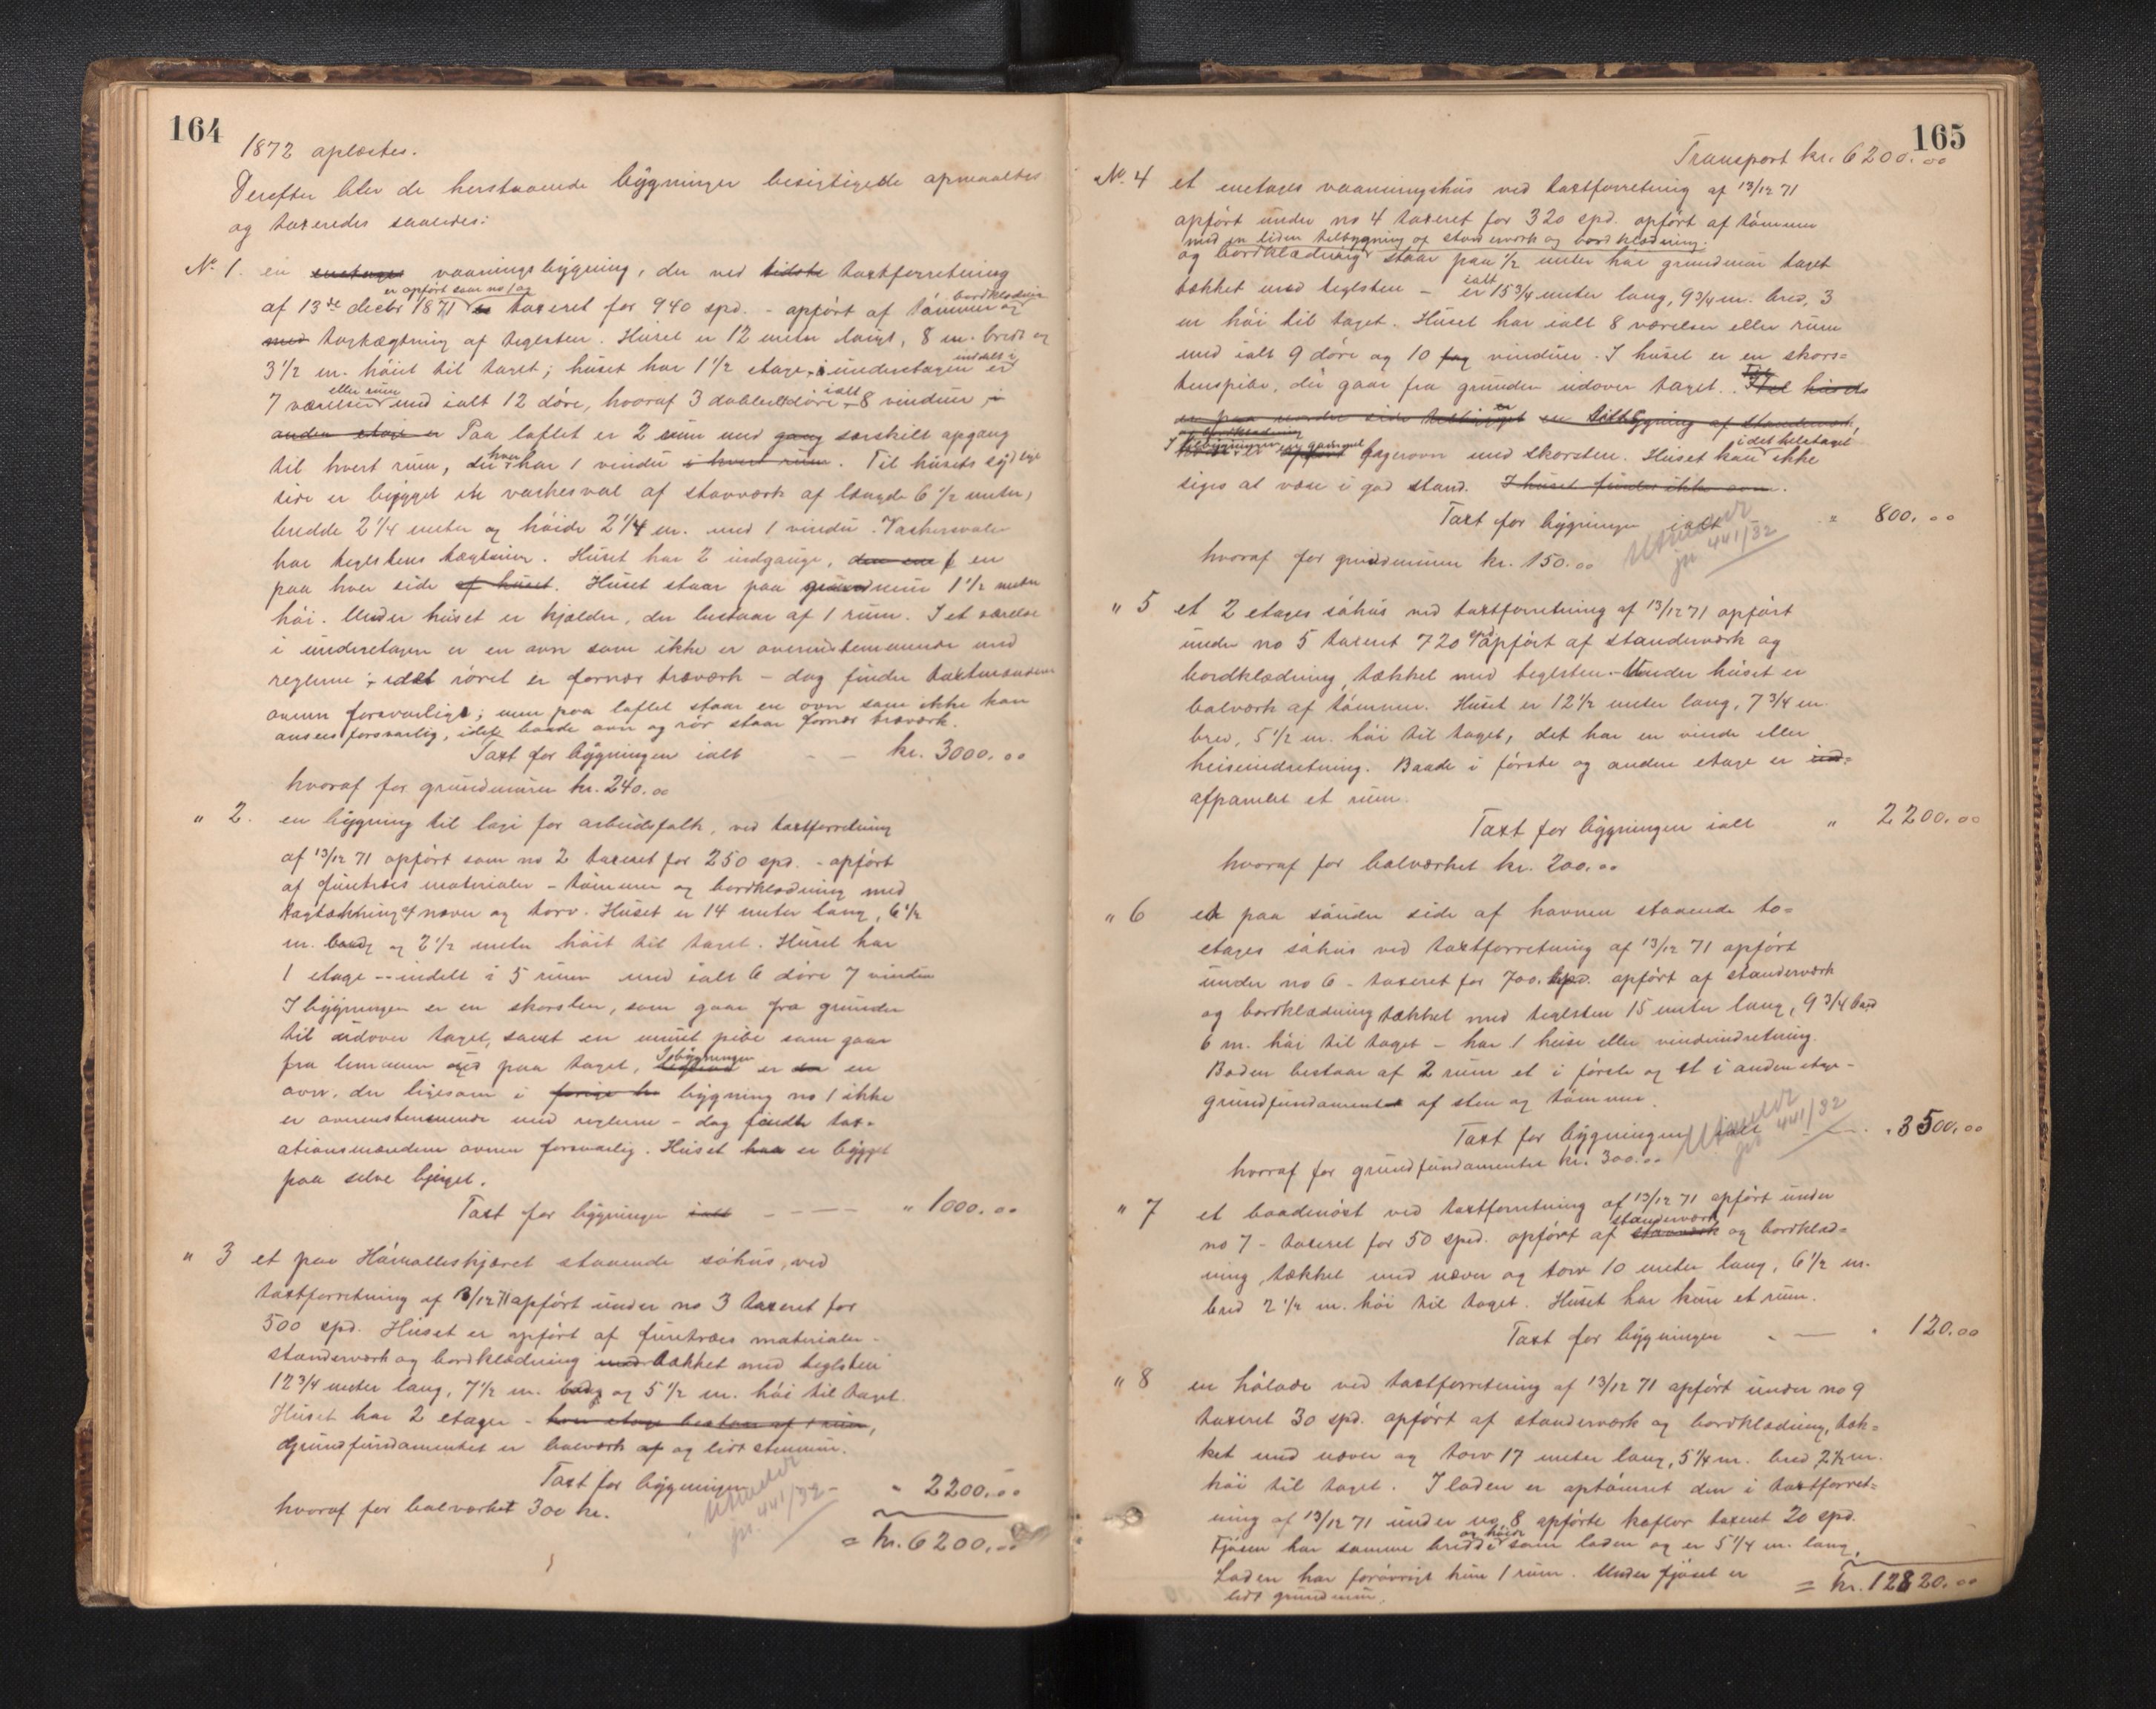 164
1872 oplæstes.
Derefter blev de herstaaende bygninger besigtigede opmaaltes
og taxeredes saaledes:
No. 1. en enetages vaaningsbygning, der ved sidste taxtforretning
er opført som no 1 og
af 13de decbr 1871 er taxeret for 940 spd. - opført af tømmer og bordklædning
med tagtægtning af teglsten. Huset er 12 meter langt, 8 m. bredt og
3 1/2 m. høit til taget; huset har 1 1/2 etage, i understagen er inddelt i
7 værelser eller rum med ialt 12 døre, hvoraf 3 dobbeltdøre - ialt 8 vinduer, i
anden etage er Paa loftet er 2 rum med gang særskilt opgang
til hvert rum, der hver har 1 vindu i hvert rum. Til husets sydlige
side er bygget en vaskesval af stavværk af længde 6 1/2 meter,
bredde 2 1/4 meter og høide 2 1/4 m. med 1 vindu. Vaskesvalen
har teglstens tægtning. Huset har 2 indgange, den ene en
paa hver side af huset. Huset staar paa grundmur 1 1/2 meter
høi. Under huset er kjælder, der bestaar af 1 rum. I et værelse
i underetagen er en ovn som ikke er overensstemmende med
reglerne; idet røret er fornær træværk - dog finder taxtmændene
ovnen forsvarlige; men paa loftet staar en ovn som ikke kan
ansees forsvarlig, idet baade ovn og rør staar fornær træværk.
Taxt for bygningen ialt - - kr. 3000.00
hvoraf for grundmuren kr. 240.00
" 2. en bygning til logi for arbeidsfolk, ved taxtforretning
af 13/12 71 opført som no 2 taxeret for 250 spd. - opført
af furutræs materialer - tømmer og bordklædning med
tagtækning af næver og torv. Huset er 14 meter lang, 6 1/2
m. bredt og 2 1/2 meter høit til taget. Huset har
1 etage - inddelt i 5 rum med ialt 6 døre 7 vinduer
I bygningen er en skorsten, som gaar fra grunden
til udover taget, samt en muret pibe som gaar
fra lemmen ud paa taget, I bygningen er en
ovn, der ligesom i forige hu bygning no 1 ikke
er overenstemmende med reglerne - dog findes tax-
ationsmændene ovnen forsvarlig. Huset har er bygget
paa selve bjerget.
Taxt for bygningen ialt - - - - " 1000.00
" 3 et paa Håvalleskjæret staaende søhus, ved
taxtforretning af 13/12 71 opført under no 3 taxeret for
500 spd. Huset er opført af furetræes materialer -
standerværk og bordklædning med tækket med teglsten
12 3/4 meter lang, 7 1/2 m. bred og 5 1/2 m. høi til taget.
Huset har 2 etager - hver etage bestaar af 1 rum,
Grundfundamentet er bolværk af og lidt stenmur.
Taxt for bygningen - " 2200.00
hvoraf for bolværket 300 kr.
Utmeldt
jr. 441/32
= kr. 6200.00
165
Transport kr. 6200.00
No. 4 et enetages vaaningshus ved taxtforretning af 13/12 71
opført under no 4 taxeret for 320 spd. opført af tømmer
med en liden tilbygning af standerværk og bordklædning.
og bordklædning staar paa 1/2 meter høi grundmur taget
tækket med teglsten - er ialt 15 3/4 meter lang, 9 3/4 m. bred, 3
m høi til taget. Huset har ialt 8 værelser eller rum
med ialt 9 døre og 10 fag vinduer. I huset er en skors-
tenspibe, der gaar fra grunden udover taget. Ved husets
en paa nordre side tilbygget er en tilbygning af standerværk,
og bordklædning
I tilbygningen er gammel bagerovn med skorsten. Huset kan i det heletaget ikke
siges at være i god stand. I huset findes ikke ovn.
Taxt for bygningen ialt " 800.00
hvoraf for grundmuren kr. 150.00
Utmeldt
jr 441/32
" 5 et 2 etages søhus ved taxtforretning af 13/12 71 opført
under no 5 taxeret 720 spd opført af standerværk og
bordklædning, tækket med teglsten. - Under huset er
bolværk af tømmer. Huset er 12 1/2 meter lang, 7 3/4 m.
bred, 5 1/2 m. høi til taget, det har en vinde eller
heiseindretning. Baade i første og anden etage er ind-
afpanelet et rum.
Taxt for bygningen ialt " 2200.00
hvoraf for bolværket kr. 200.00
" 6 et paa søndre side af havnen staaende to-
etages søhus ved taxtforretning af 13/12 71 opført
under no 6 - taxeret for 700. spd. opført af standerværk
og bordklædning tækket med teglsten 15 meter lang, 9 3/4 bred
6 m. høi til taget - har 1 heise eller vindeindretning.
Boden bestaar af 2 rum et i første og et i anden etage -
grundfundamentet af sten og tømmer.
Taxt for bygningen ialt - " 3500.00
hvoraf for grundfundamentet kr. 300.00
Utmeldt
jr 441/32
" 7 et baadenøst ved taxtforretning af 13/12 71 opført under
no 7 - taxeret for 50 spd. opført af stavværk standerværk og bordklæd-
ning, tækket med næver og torv 10 meter lang, 6 1/2 m.
bred 2 1/2 m. høi til taget. Huset har kun et rum.
Taxt for bygningen - — " 120.00
" 8 en hølade ved taxtforretning af 13/12 71 opført under no 9
taxeret 30 spd. opført af standerværk og bordklædning, tæk-
ket med næver og torv 17 meter lang, 5 1/4 m. bred 2 1/2 m.
høi til taget. I laden er optømret den i taxtforret-
ning af 13/12 71 under no 8 opførte koflor taxeret 20 spd.
Fjøsen har samme bredde og høide som laden og er 5 1/4 m. lang.
Laden har forøvrigt kun 1 rum. Under fjøset er
lidt grundmur.
= kr. 12820.00